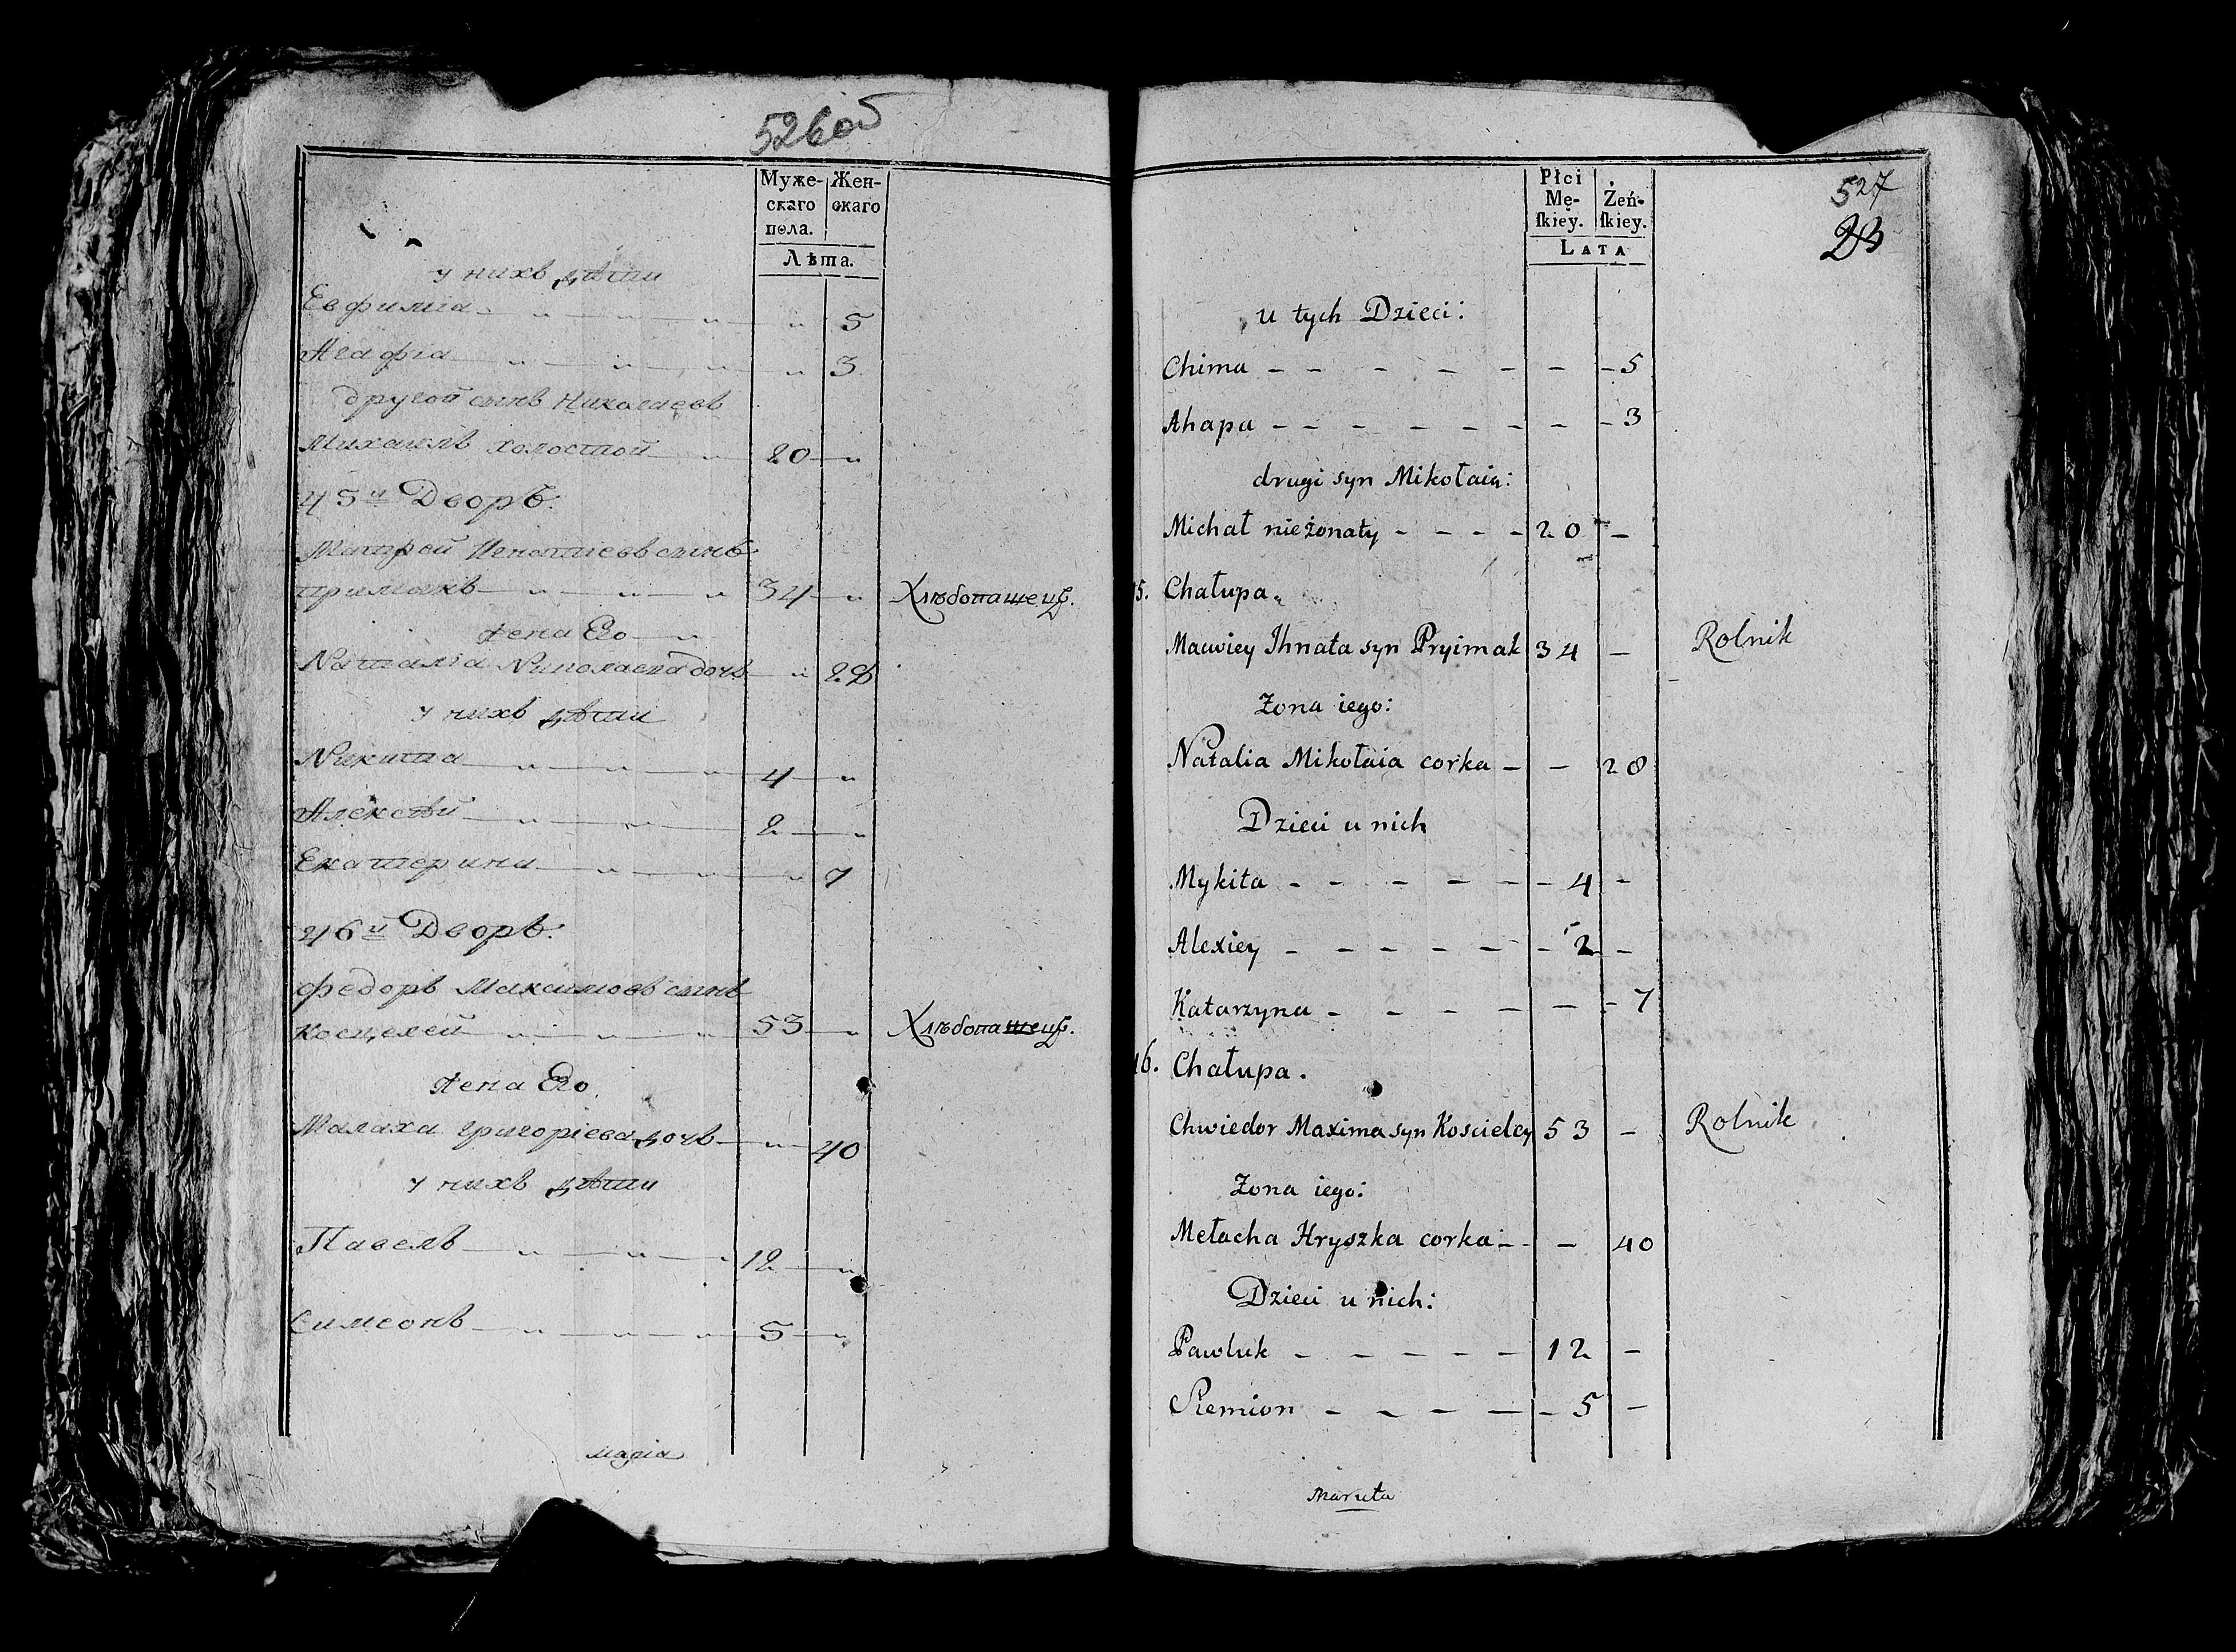 526об
Муже- Жен-
скаго скаго
пола.
Лѣта.
у нихъ дѣти
Евфимiа 5
Агафiа 3
другой сынъ Николаевъ
Михаилъ холостой 20
45й Дворъ:
Матфей Игнатiевъ сынъ
примакъ 34 Хлѣбопашецъ.
жена Его
Наталiа Николаева дочь 28
у нихъ дѣти
Никита 4
Алексѣй 2
Екатерина 7
46й Дворъ:
Федоръ Максимовъ сынъ
Косцелей 53 Хлѣбопашецъ.
жена Его.
Малаха Григорiева дочь 40
у нихъ дѣти
Павелъ 12
Симеонъ 5
527
23
Płci Żeń-
Mę- ſkiey.
ſkiey.
LATA
u tych Dzieci:
Chima - - - - - - - 5
Ahapa - - - - - - - - 3
drugi syn Mikołaia:
Michał nieżonaty - - - - 20 -
5. Chałupa.
Mauwiey Ihnata syn Pryimak 34 - Rolnik
Żona iego:
Natalia Mikołaia corka - - 28
Dzieci u nich
Mykita - - - - - - 4 -
Alexiey - - - - - - 2 -
Katarzyna - - - - - - 7
16. Chałupa.
Chwiedor Maxima syn Koscieley 53 - Rolnik
Żona iego:
Mełacha Hryszka corka - - - 40
Dzieci u nich:
Pawluk - - - - - 12 -
Siemion - - - - - 5 -
Maruta